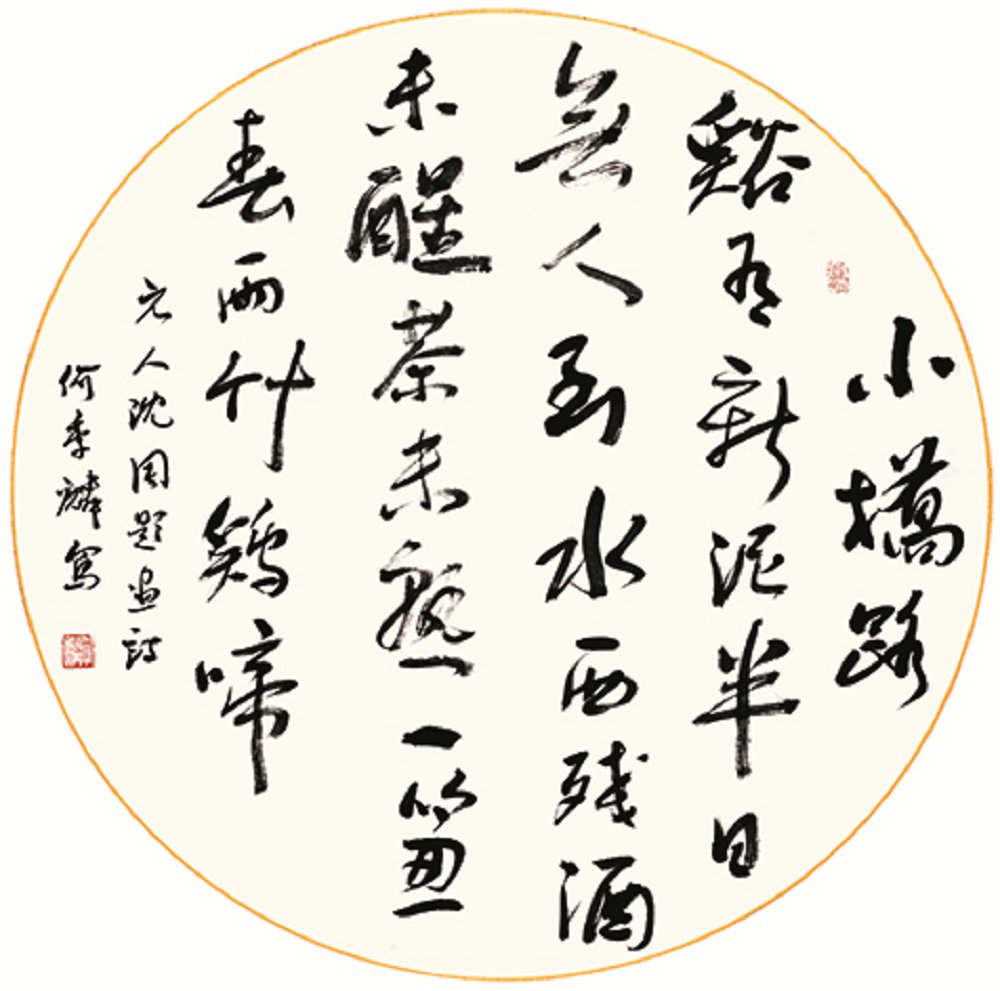 小橋路
谿有新泥半日
無人到水西残酒
未醒茶未熟一
春雨竹鷄啼
元人沈周題畫詩
何麟寫